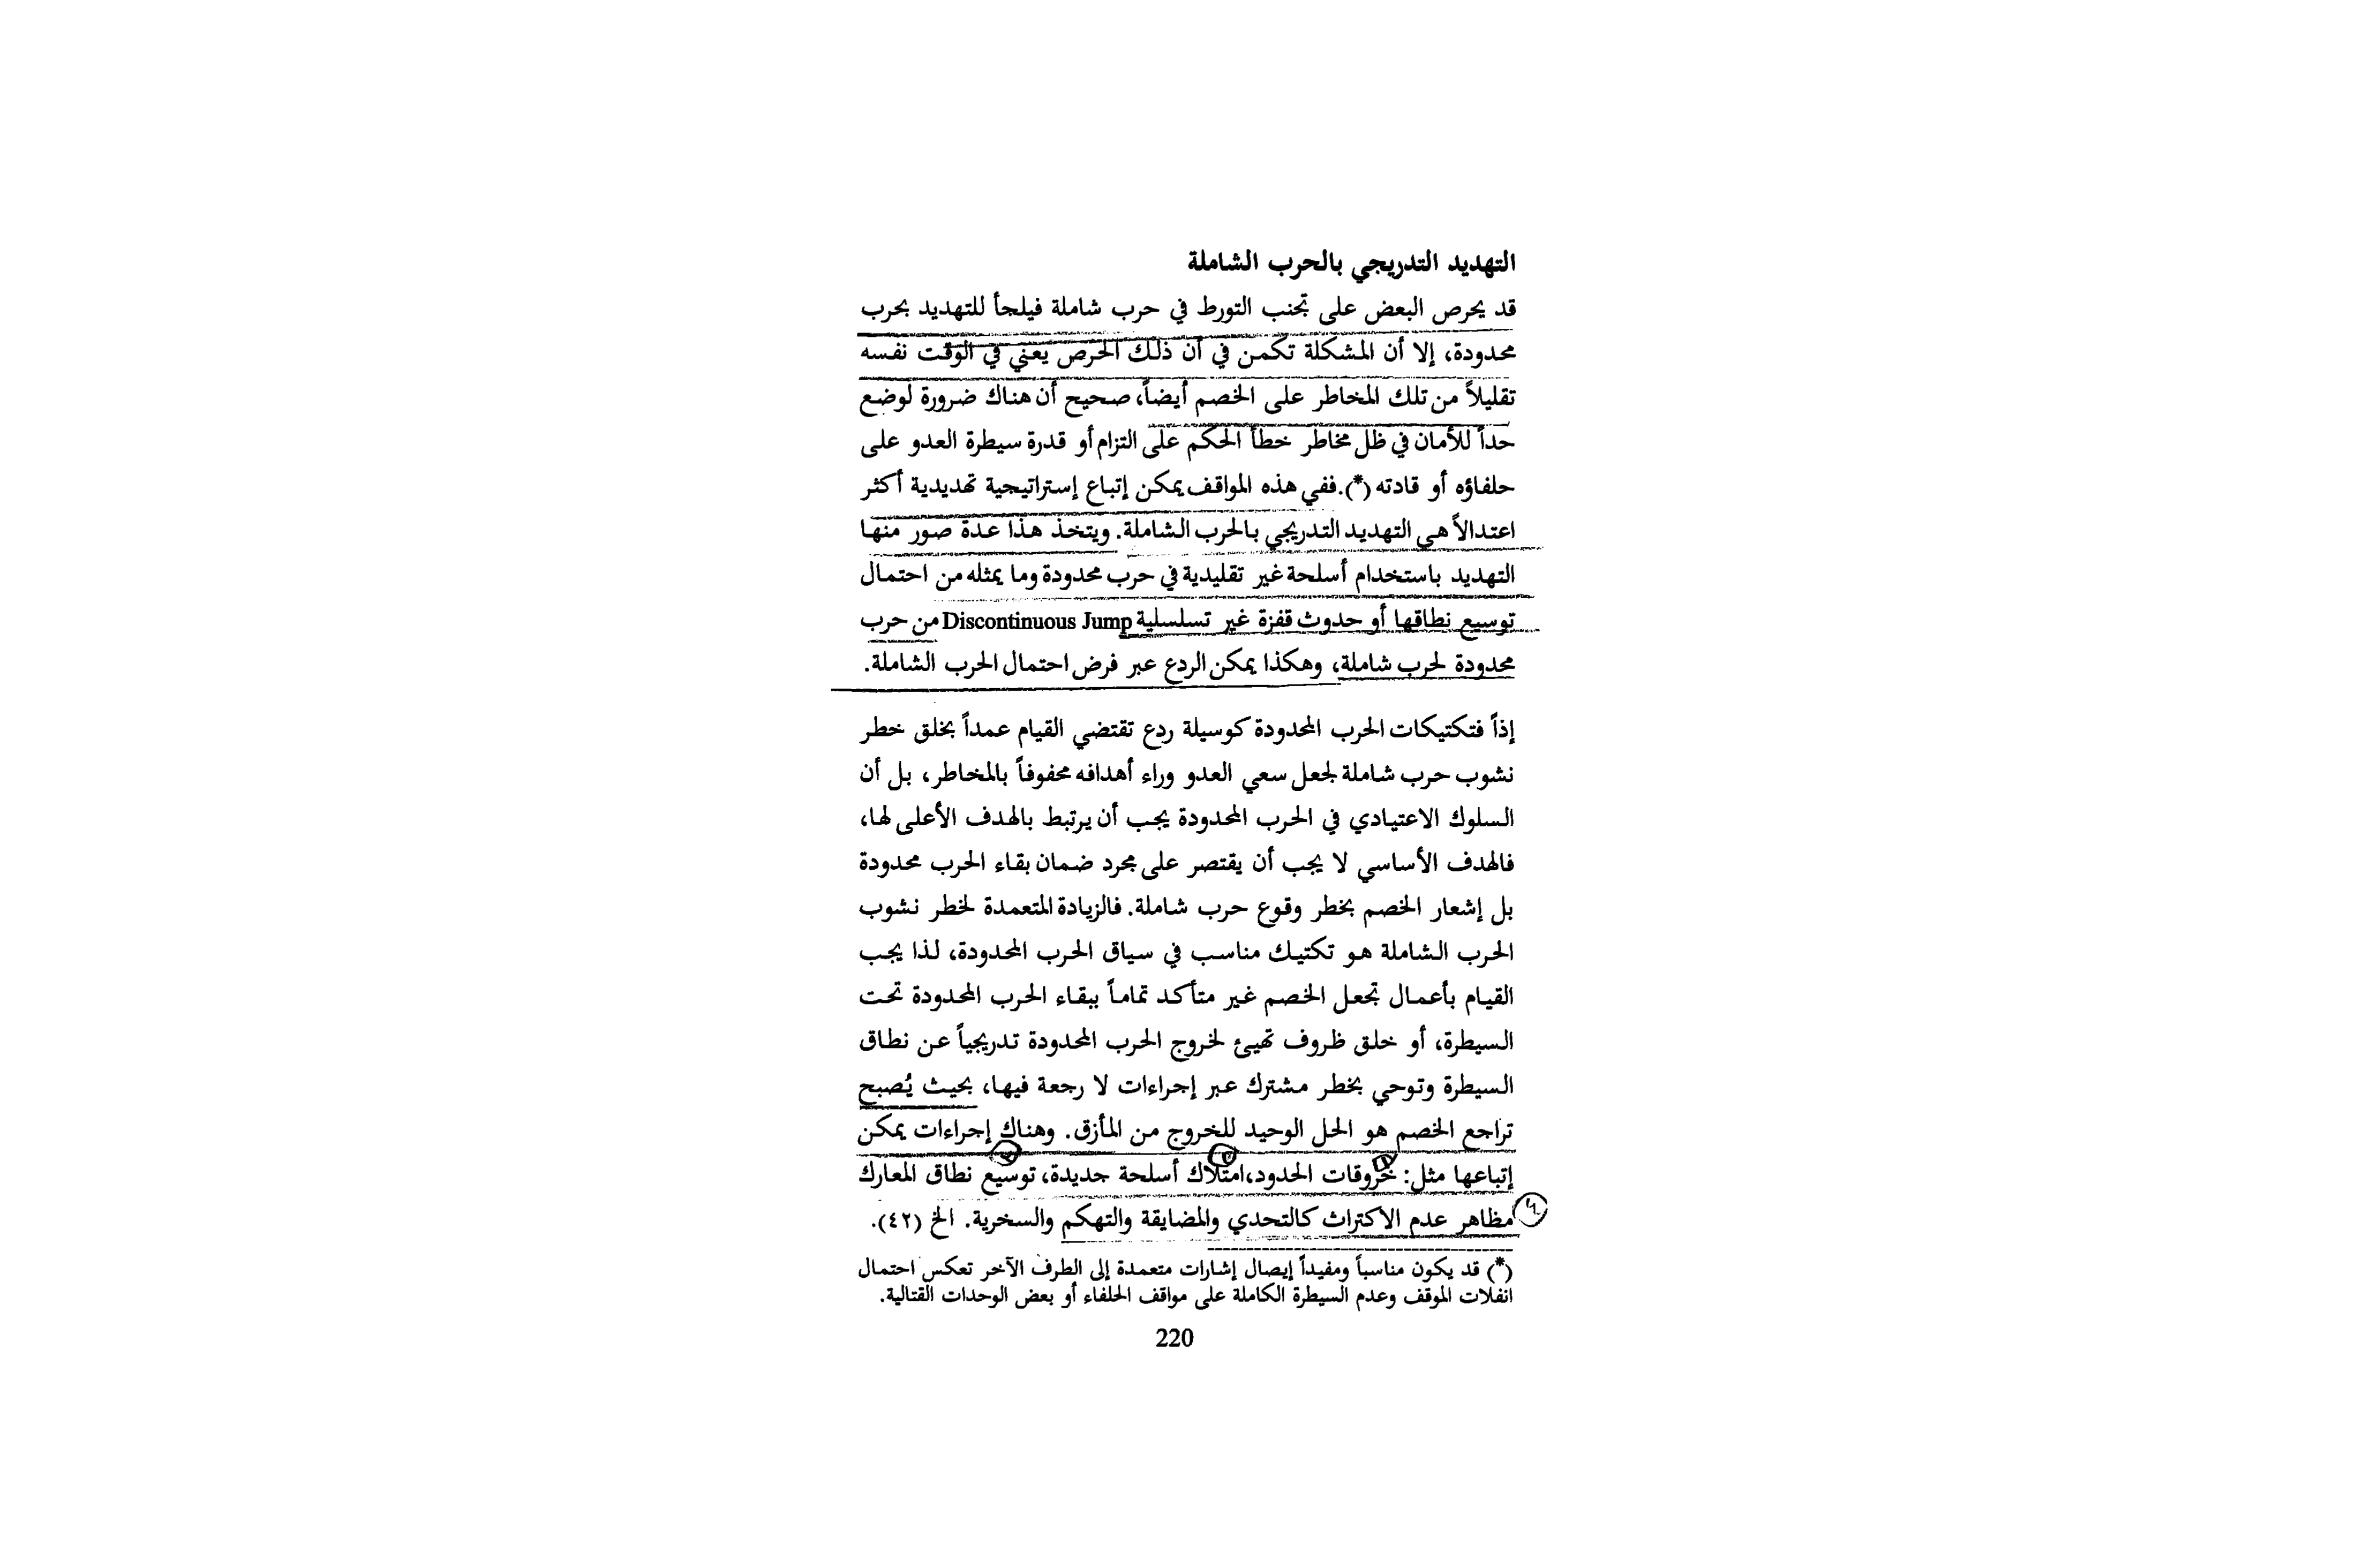 التهديد التدريجي بالحرب الشاملة
قد يحرص البعض على تجنب التورط في حرب شاملة فيلجأ للتهديد بحرب
محدودة، إلا أن المشكلة تكمن في أن ذلك الحرص يعني في الوقت نفسه
تقليلاً من تلك المخاطر على الخصم أيضاً، صحيح أن هناك ضرورة لوضع
حداً للأمان في ظل مخاطر خطأ الحكم على التزام أو قدرة سيطرة العدو على
حلفاؤه أو قادته (*). ففي هذه المواقف يمكن إتباع إستراتيجية تهديدية أكثر
اعتدالاً هي التهديد التدريجي بالحرب الشاملة. ويتخذ هذا عدة صور منها
التهديد باستخدام أسلحة غير تقليدية في حرب محدودة وما يمثله من احتمال
توسيع نطاقها أو حدوث قفزة غير تسلسلية Discontinuous Jump من حرب
محدودة لحرب شاملة، وهكذا يمكن الردع عبر فرض احتمال الحرب الشاملة.
إذاً فتكتيكات الحرب المحدودة كوسيلة ردع تقتضي القيام عمداً بخلق خطر
نشوب حرب شاملة لجعل سعي العدو وراء أهدافه محفوفاً بالمخاطر، بل أن
السلوك الاعتيادي في الحرب المحدودة يجب أن يرتبط بالهدف الأعلى لها،
فالهدف الأساسي لا يجب أن يقتصر على مجرد ضمان بقاء الحرب محدودة
بل إشعار الخصم بخطر وقوع حرب شاملة. فالزيادة المتعمدة لخطر نشوب
الحرب الشاملة هو تكتيك مناسب في سياق الحرب المحدودة، لذا يجب
القيام بأعمال تجعل الخصم غير متأكد تماماً ببقاء الحرب المحدودة تحت
السيطرة، أو خلق ظروف تهيئ لخروج الحرب المحدودة تدريجياً عن نطاق
السيطرة وتوحي بخطر مشترك عبر إجراءات لا رجعة فيها، بحيث يُصبح
تراجع الخصم هو الحل الوحيد للخروج من المأزق. وهناك إجراءات يمكن
إتباعها مثل: خروقات الحدود، امتلاك أسلحة جديدة، توسيع نطاق المعارك
مظاهر عدم الاكتراث كالتحدي والمضايقة والتهكم والسخرية. الخ (٤٢).
(*) قد يكون مناسباً ومفيداً إيصال إشارات متعمدة إلى الطرف الآخر تعكس احتمال
انفلات الموقف وعدم السيطرة الكاملة على مواقف الحلفاء أو بعض الوحدات القتالية.
220